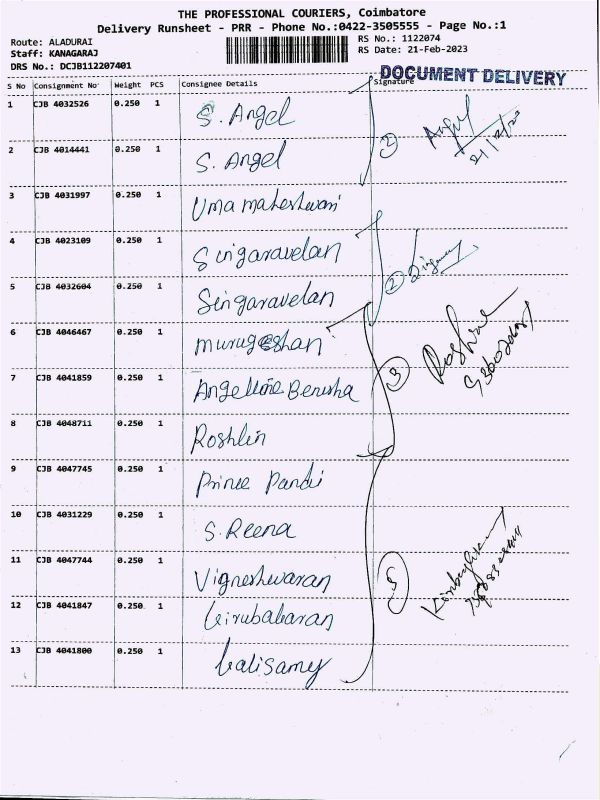 THE PROFESSIONAL COURIERS, Coimbatore
Delivery Runsheet - PRR - Phone No.:0422-3505555 - Page No.:1
Route: ALADURAI
Staff: KANAGARAJ
DRS No.: DCJB112207401
RS No.: 1122074
RS Date: 21-Feb-2023
DOCUMENT DELIVERY
S No Consignment No Weight PCS Consignee Details Signature
1 CJB 4032526 0.250 1 S. Angel
2 CJB 4014441 0.250 1 S. Angel
3 CJB 4031997 0.250 1 Uma maheshwari
4 CJB 4023109 0.250 1 Singaravelan
5 CJB 4032604 0.250 1 Singaravelan
6 CJB 4046467 0.250 1 Murugeshan
7 CJB 4041859 0.250 1 Angeline Benisha
8 CJB 4048711 0.250 1 Roshlin
9 CJB 4047745 0.250 1 Prince Pandi
10 CJB 4031229 0.250 1 S. Reena
11 CJB 4047744 0.250 1 Vigneshwaran
12 CJB 4041847 0.250 1 kirubakaran
13 CJB 4041800 0.250 1 kalisamy
2
Angel
2
3
5